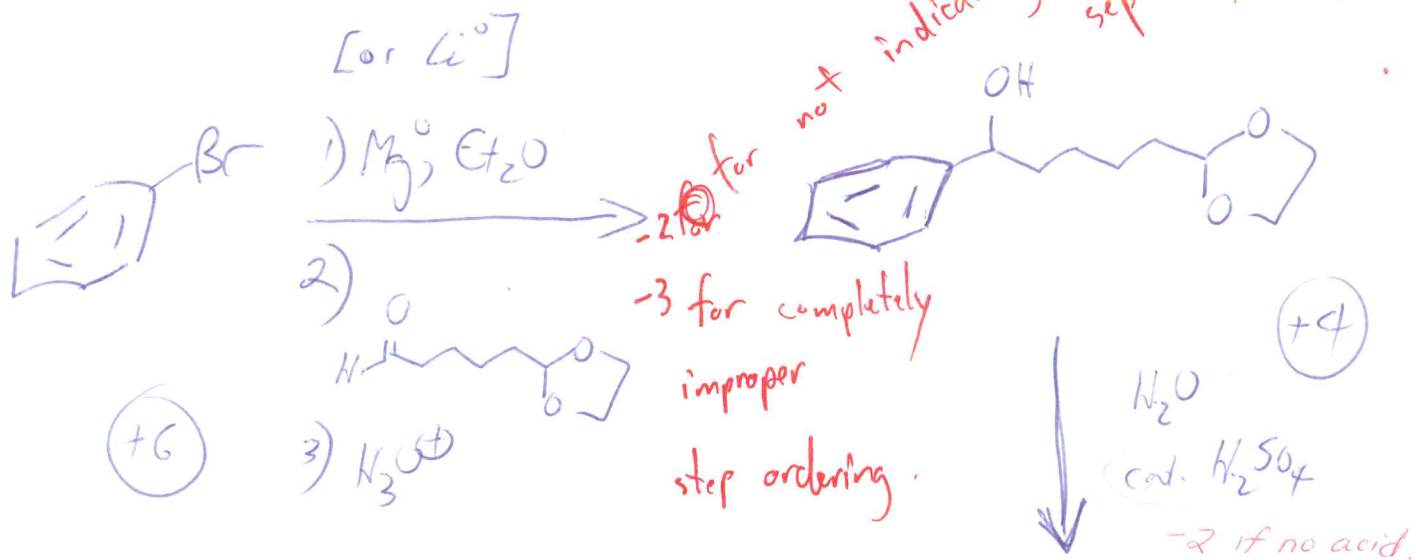 [or Li°]
1) Mg°, Et₂O
Br
2)
O
H
O
O
3) H₃O⊕
+6
not indica
sep
-2 for
-3 for completely
improper
step ordering.
OH
O
O
+4
H₂O
cat. H₂SO₄
-2 if no acid.